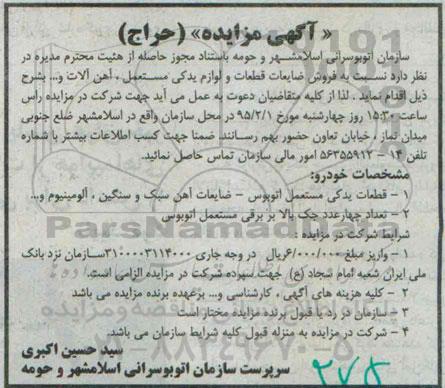 « آگهی مزایده» (حراج)
سازمان اتوبوسرانی اسلامشهر و حومه باستناد مجوز حاصله از هئیت محترم مدیره در
نظر دارد نسبت به فروش ضایعات قطعات و لوازم یدکی مستعمل ، آهن آلات و... بشرح
ذیل اقدام نماید . لذا از کلیه متقاضیان دعوت به عمل می آید جهت شرکت در مزایده راس
ساعت ۱۵:۳۰ روز چهارشنبه مورخ ۹۵/۲/۱ در محل سازمان واقع در اسلامشهر ضلع جنوبی
میدان نماز ، خیابان تعاون حضور بهم رسانند. ضمنا جهت کسب اطلاعات بیشتر با شماره
تلفن ۱۴ – ۵۶۳۵۵۹۱۲ امور مالی سازمان تماس حاصل نمائید.
مشخصات خودرو:
۱ – قطعات یدکی مستعمل اتوبوس – ضایعات آهن سبک و سنگین ، آلومینیوم و...
۲ – تعداد چهارعدد جک بالا بر برقی مستعمل اتوبوس
شرایط شرکت در مزایده :
۱ – واریز مبلغ ۶/۰۰۰/۰۰۰ریال در وجه جاری ۳۱۰۰۰۰۳۱۱۴۰۰۰سازمان نزد بانک
ملی ایران شعبه امام سجاد (ع) جهت سپرده شرکت در مزایده الزامی است.
۲ – کلیه هزینه های آگهی ، کارشناسی و... برعهده برنده مزایده می باشد
۳ – سازمان در رد یا قبول برنده مزایده مختار است
۴ – شرکت در مزایده به منزله قبول کلیه شرایط سازمان می باشد.
سید حسین اکبری
سرپرست سازمان اتوبوسرانی اسلامشهر و حومه
۲۷۸
ParsNamadData